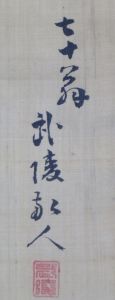 七十翁
武陵散人